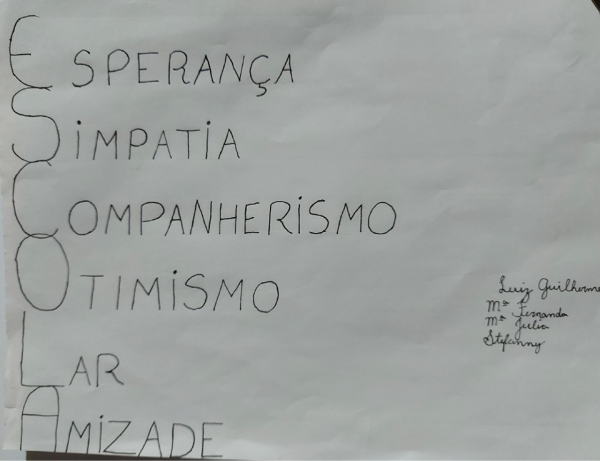 ESPERANÇA
SIMPATIA
COMPANHERISMO
OTIMISMO
LAR
AMIZADE
Luiz Guilherme
Mª Fernanda
Mª Julia
Stefanny